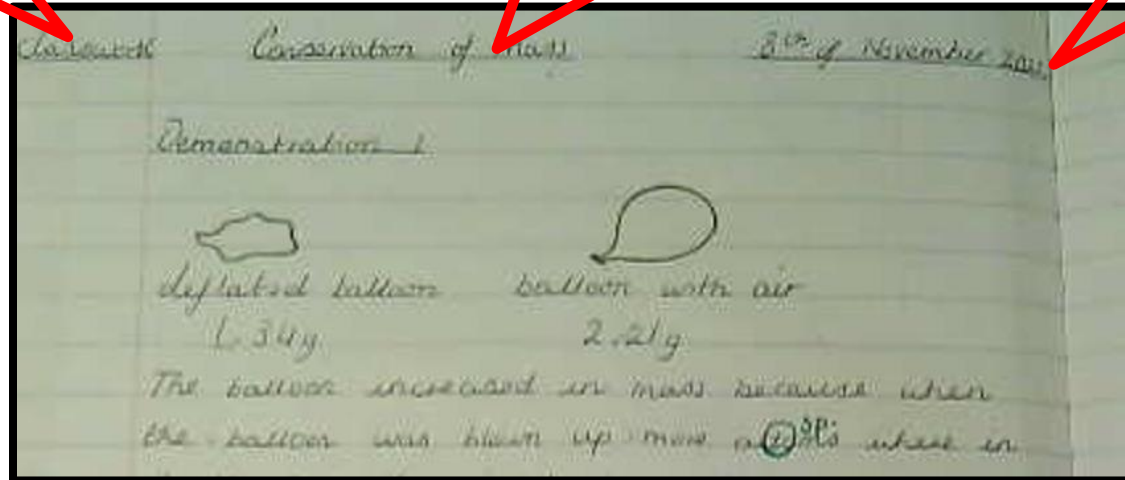 classwork Conservation of mass 8th of November
Demonstration 1
deflated balloon balloon with air
1.34g 2.21g
The balloon increased in mass because when
the balloon was blown up more where in